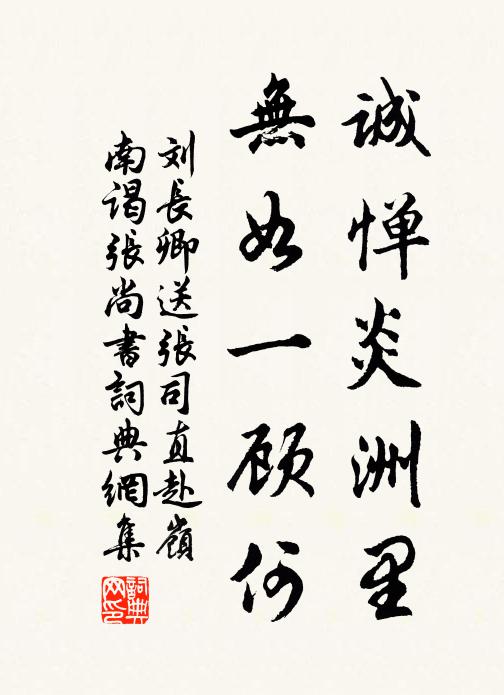 誠惮炎洲里
無如一顾何
刘長卿送張司直赴嶺
南谒張尚書詞典網集
詞典
网印